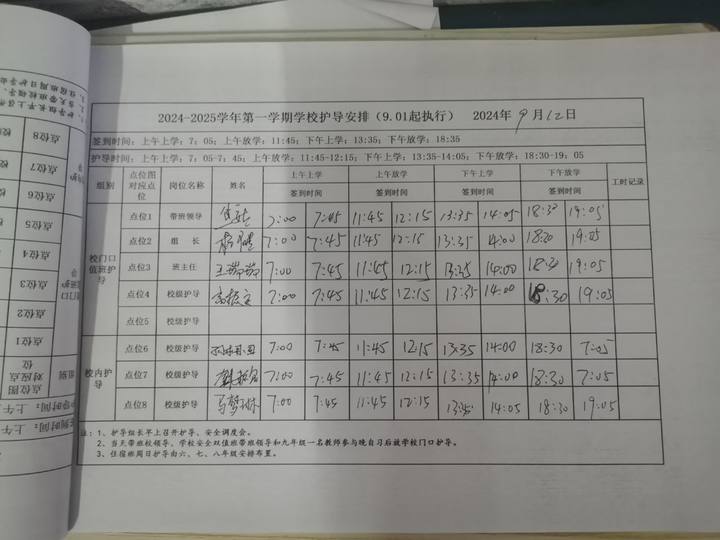 2024-2025学年第一学期学校护导安排（9.01起执行） 2024年 9 月 12 日
签到时间：上午上学：7：05；上午放学：11:45；下午上学：13:35；下午放学：18:35
护导时间：上午上学：7:05-7：45；上午放学：11:45-12:15；下午上学：13:35-14:05；下午放学：18:30-19；05
组别 点位图对应点位 岗位名称 姓名 上午上学 上午放学 下午上学 下午放学 工时记录
签到时间 签到时间 签到时间 签到时间
校门口值班护导
点位1 带班领导 7:00 7:45 11:45 12:15 13:35 14:05 18:30 19:05
点位2 组 长 7:00 7:45 11:45 12:15 13:35 14:00 18:30 19:05
点位3 班主任 7:00 7:45 11:45 12:15 13:35 14:00 18:30 19:05
点位4 校级护导 7:00 7:45 11:45 12:15 13:35 14:00 18:30 19:05
点位5 校级护导
校内护导
点位6 校级护导 7:00 7:45 11:45 12:15 13:35 14:00 18:30 7:05
点位7 校级护导 7:00 7:45 11:45 12:15 13:35 14:00 18:30 7:05
点位8 校级护导 7:00 7:45 11:45 12:15 13:45 14:05 18:30 19:05
注：1、护导组长早上召开护导、安全调度会。
2、当天带班校领导、学校安全双值班带班领导和九年级一名教师参与晚自习后放学校门口护导。
3、住宿班周日护导由六、七、八年级安排布置。
点位8
点位7
点位6
点位5
点位4
点位3
点位2
点位1